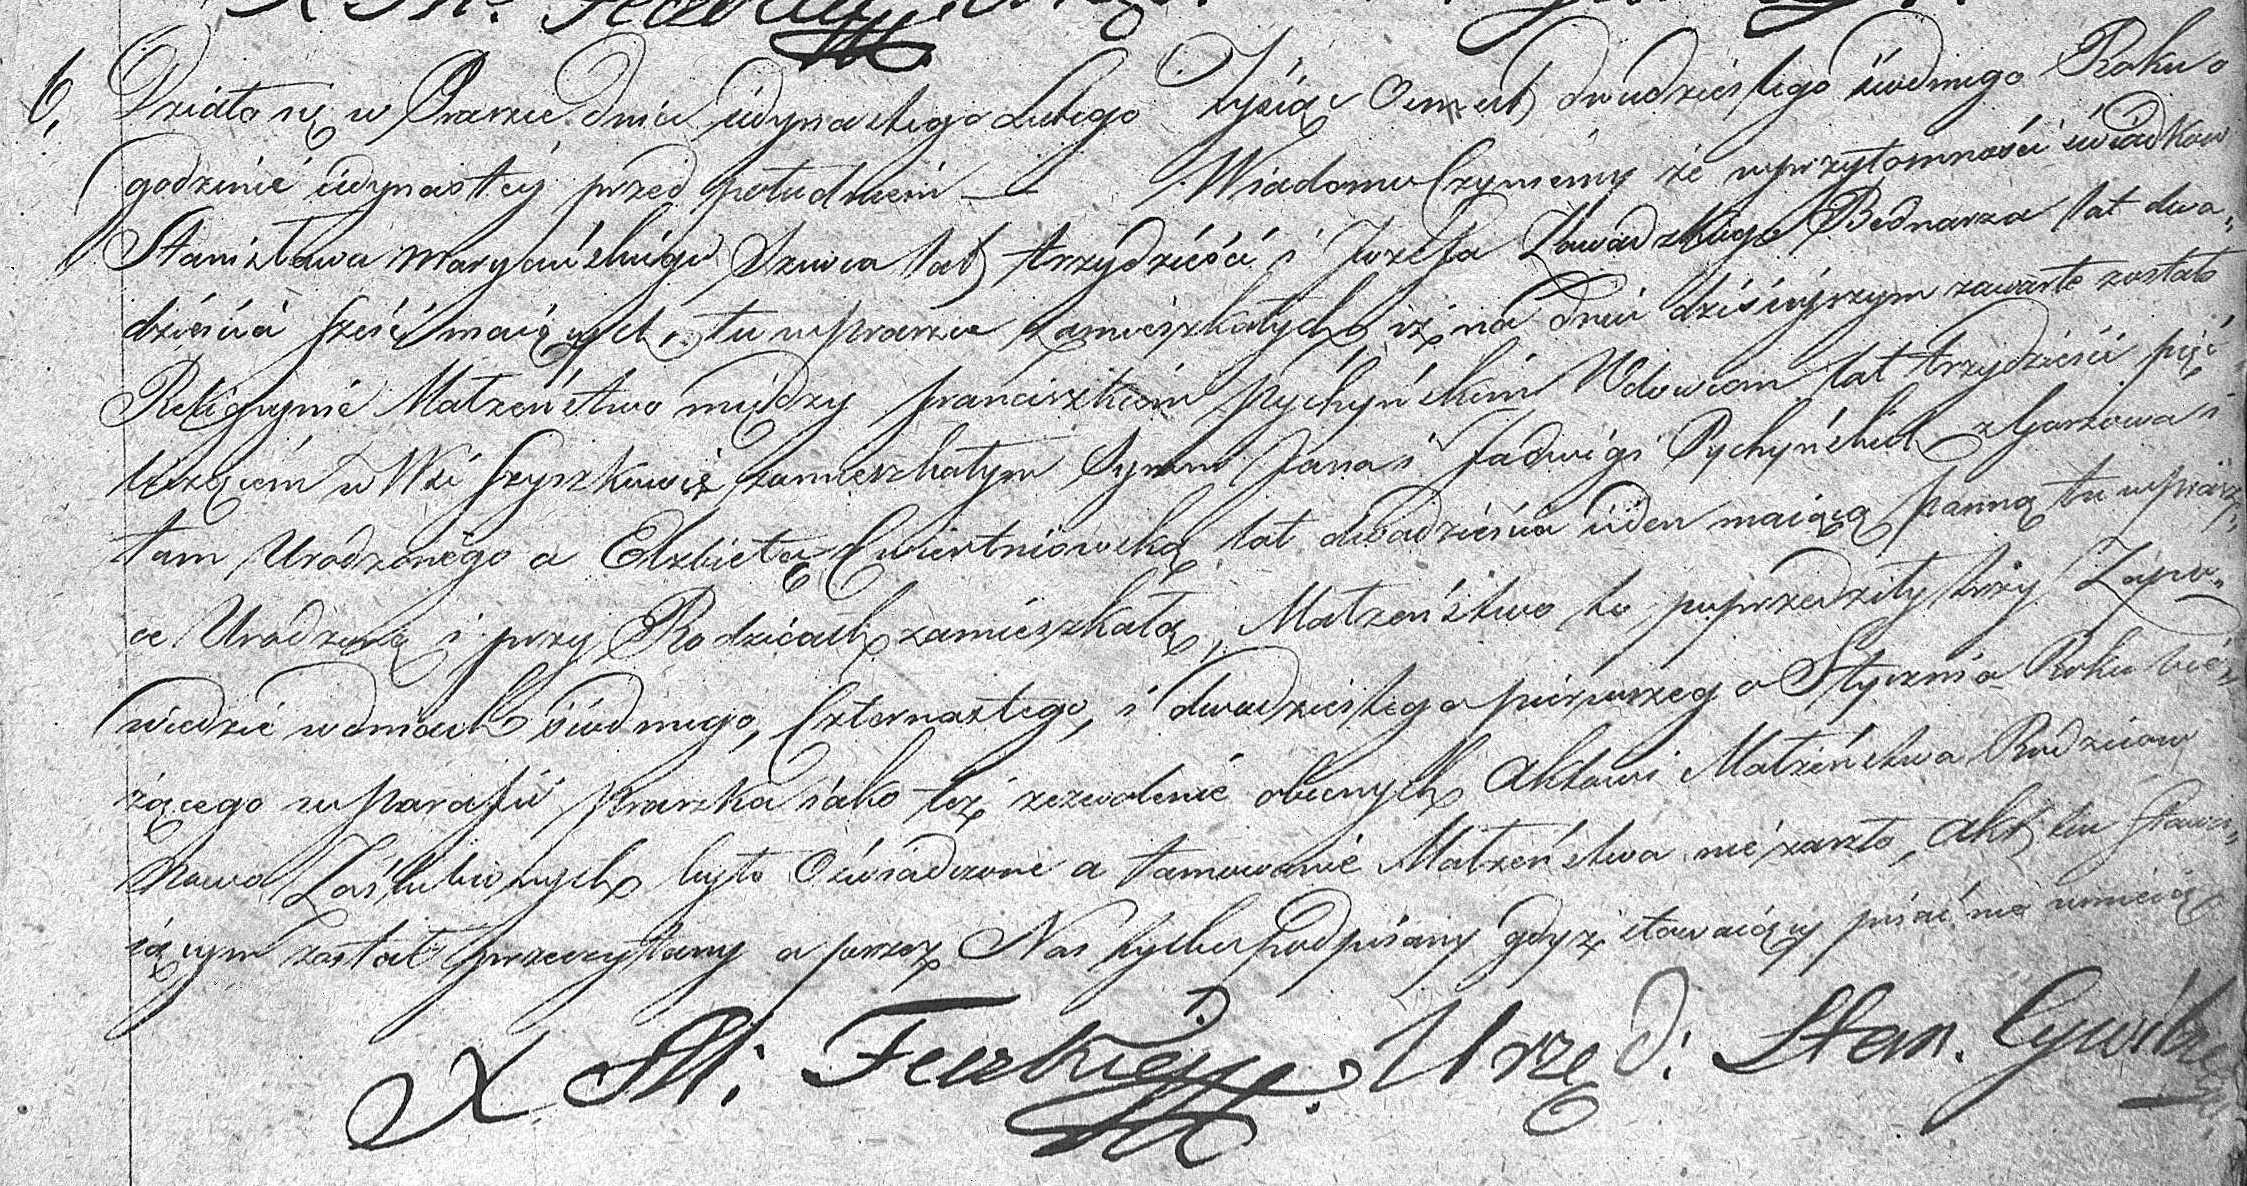 6. Działo się w Praszce dnia iedynastego Lutego Tysiąc Osmset dwudziestego siudmego Roku o
godzinie iedynastey przed południem — Wiadomo Czyniemy że wprzytomności świadkow
Stanisława Maryańskiego Szewca lat trzydzieści i Jozefa Zawadzkiego Bednarza lat dwa„
dzieścia sześć maiących, tu wpraszce zamieszkałych, iż na dniu dzisieyszym zawarte zostało
Religiynie Małżeństwo między franciszkiem Pychyńskim Wdowcem lat trzydzieści pięć
liczącem w Wsi Szyszkowie zamieszkałym Synem Jana i Jadwigi Pychyńskich
tam Urodzonego a Elzbietą Cwiertniowską lat dwadzieścia ieden maiącą panną tu wprasz„
ce Urodzoną i przy Rodzicach zamieszkałą, Małżeństwo to poprzedziły trzy Zapo„
wiedzie wdniach siudmego, Czternastego, i dwudziestego pierwszego Stycznia Roku bie„
żącego w parafii praszka iako też zezwolenie obecnych Aktowi Małżeństwa Rodzicow
Nowo Zaślubionych było Oświadczone a tamowanie Małżeństwa nie zaszło, Akt ten Stawa„
iącym został przeczytany a przez Nas tylko podpisany gdyż stawaiący pisać nie umieią
X M: Urzęd: Stan. Cywilne